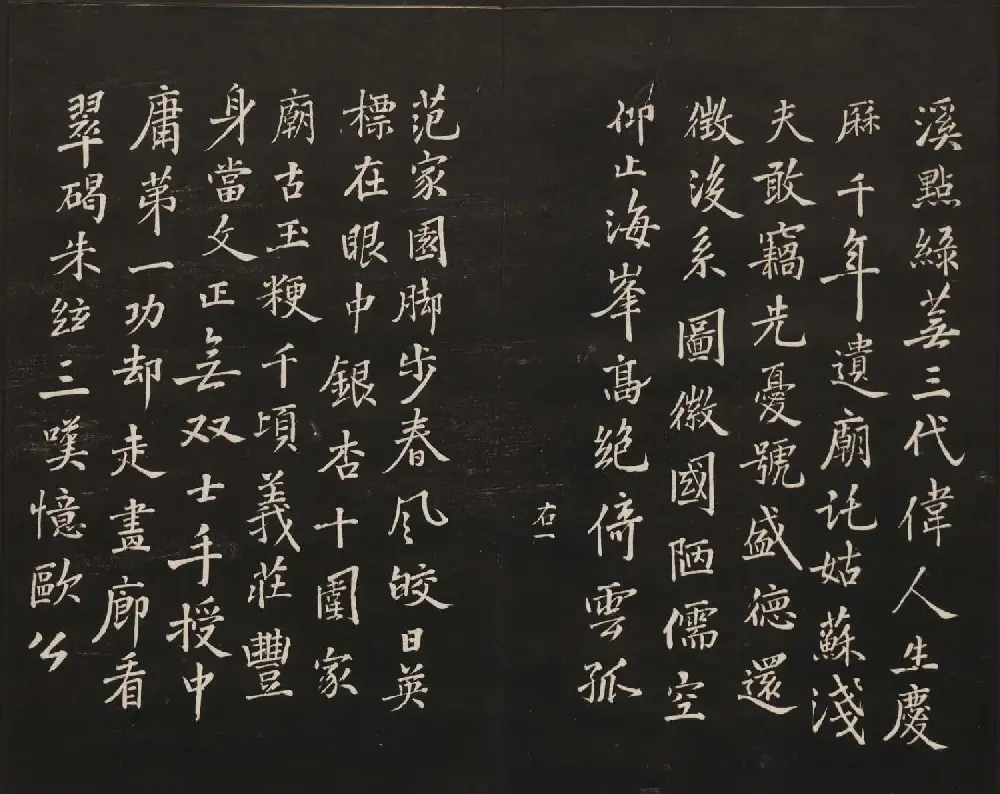 溪點綠蕪三代偉人生慶
厤千年遺廟託姑蘇淺
夫敢竊先憂號盛德還
徵後系圖徽國陋儒空
仰止海峯高絕倚雲孤
右一
范家園腳步春风皎日英
標在眼中銀杏十圍家
廟古玉粳千頃義莊豐
身當文正無双士手授中
庸第一功却走畫廊看
翠碣朱絃三嘆憶歐公